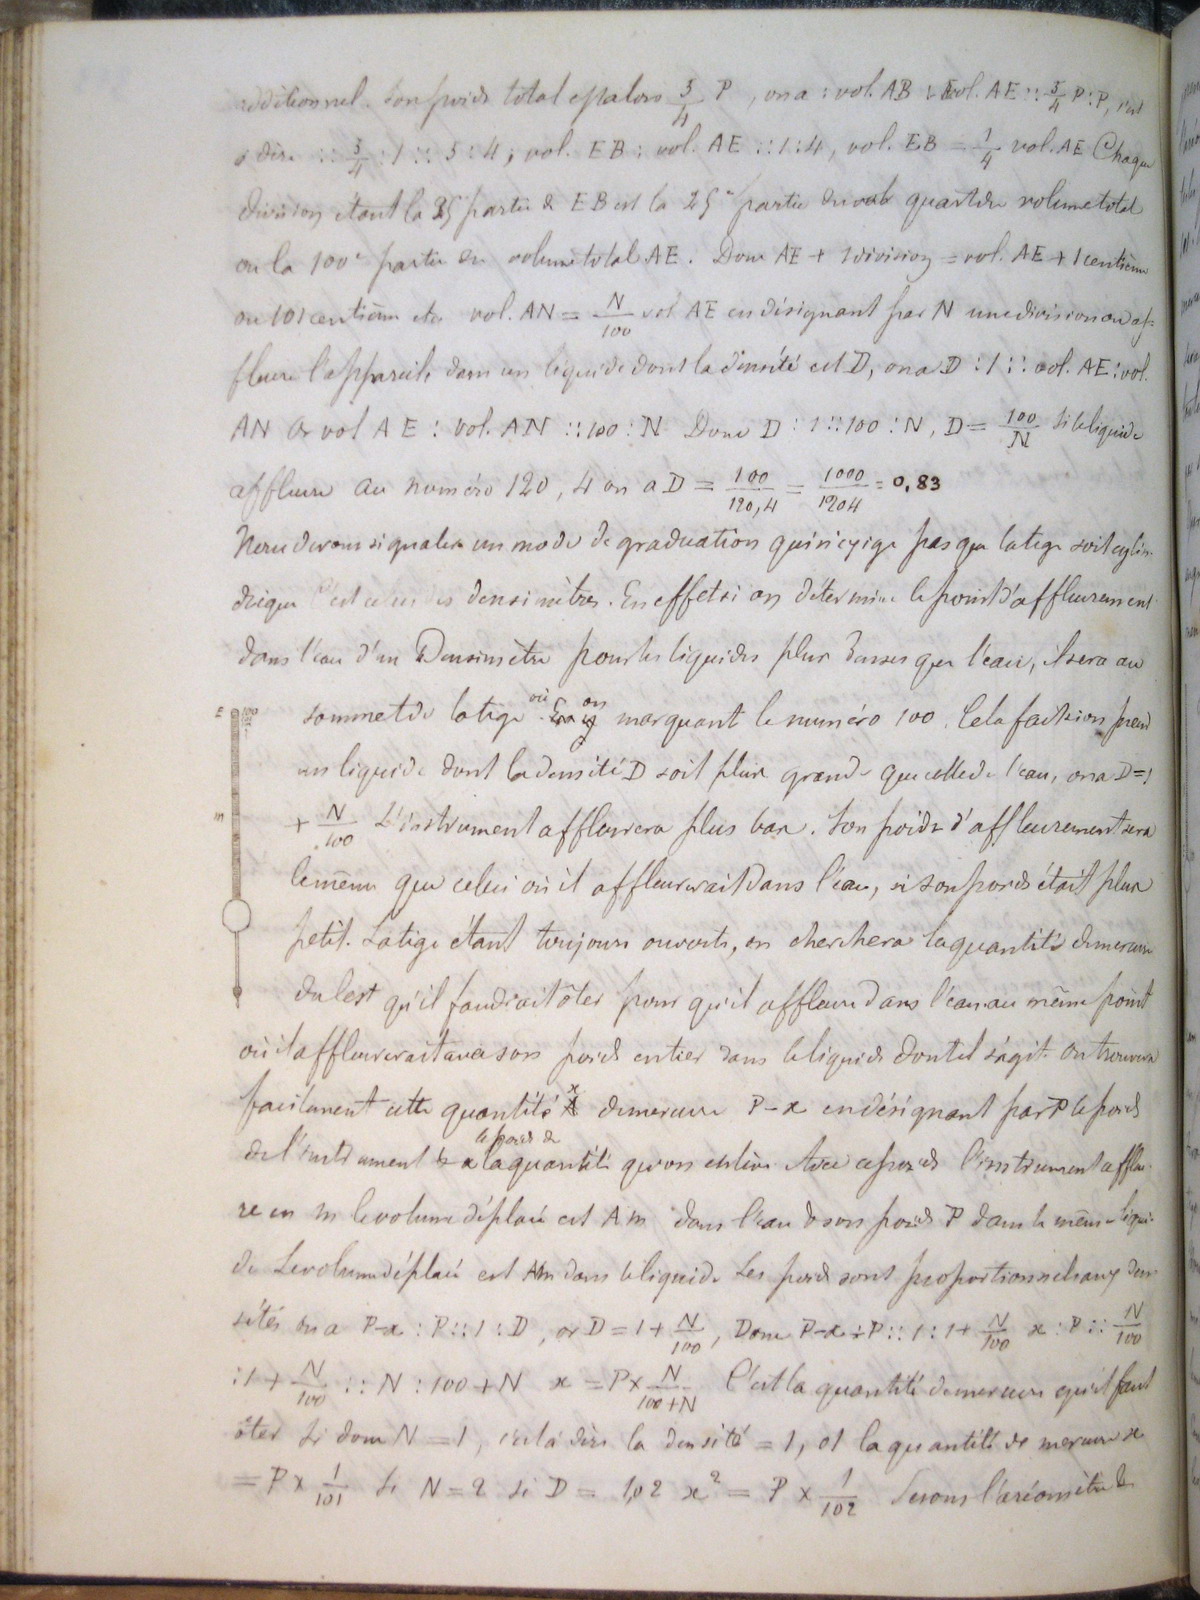 additionnel. Son poids total est alors 5/4 P, on a : vol. AB : vol. AE :: 5/4 P : P, c'est
à dire :: 5/4 : 1 :: 5 : 4 ; vol. EB : vol. AE :: 1 : 4, vol. EB = 1/4 vol. AE Chaque
division étant la 25e partie de EB est la 25e partie du quart du volume total
ou la 100e partie du volume total AE. Donc AE + 1 division = vol. AE + 1 centième
ou 101 centièm etc vol. AN = N/100 vol AE en désignant par N une division où af-
fleure l'appareil, dans un liquide dont la densité est D, on a D : 1 :: vol. AE : vol.
AN Or vol AE : vol. AN :: 100 : N Donc D : 1 :: 100 : N, D = 100/N Si le liquide
affleure au numéro 120,4 on a D = 100/120,4 = 1000/1204 = 0,83
Nous devons signaler un mode de graduation qui n'exige pas que la tige soit cylin-
drique C'est celui des densimètres. En effet si on détermine le point d'affleurement
dans l'eau d'un Densimètre pour les liquides plus denses que l'eau, il sera au
E 100
sommet de la tige où on marquant le numéro 100. Cela fait si on prend
un liquide dont la densité D soit plus grande que celle de l'eau, on a D = 1
m
+ N/100 L'instrument affleurera plus bas. Son poids d'affleurement sera
le même que celui où il affleurerait dans l'eau, si son poids était plus
petit. La tige étant toujours ouverte, on cherchera la quantité de mercure
du lest qu'il faudrait ôter pour qu'il affleure dans l'eau au même point
où il affleurerait avec son poids entier dans le liquide dont il s'agit. On trouvera
facilement cette quantité x de mercure P-x en désignant par P le poids
de l'instrument x le poids de la quantité qu'on enlève Avec ce poids l'instrument affleu-
re en m le volume déplacé est Am dans l'eau de son poids P dans le même liqui-
de Le volume déplacé est Am dans le liquide Les poids sont proportionnels aux den-
sités on a P-x : P :: 1 : D, or D = 1 + N/100, Donc P-x : P :: 1 : 1 + N/100 x : P :: N/100
: 1 + N/100 :: N : 100 + N x = P × N/100+N C'est la quantité de mercure qu'il faut
ôter Si donc N = 1, c'est à dire la densité = 1,01 la quantité de mercure x
= P × 1/101 Si N = 2 si D = 1,02 x² = P × 1/102 l'aréomètre